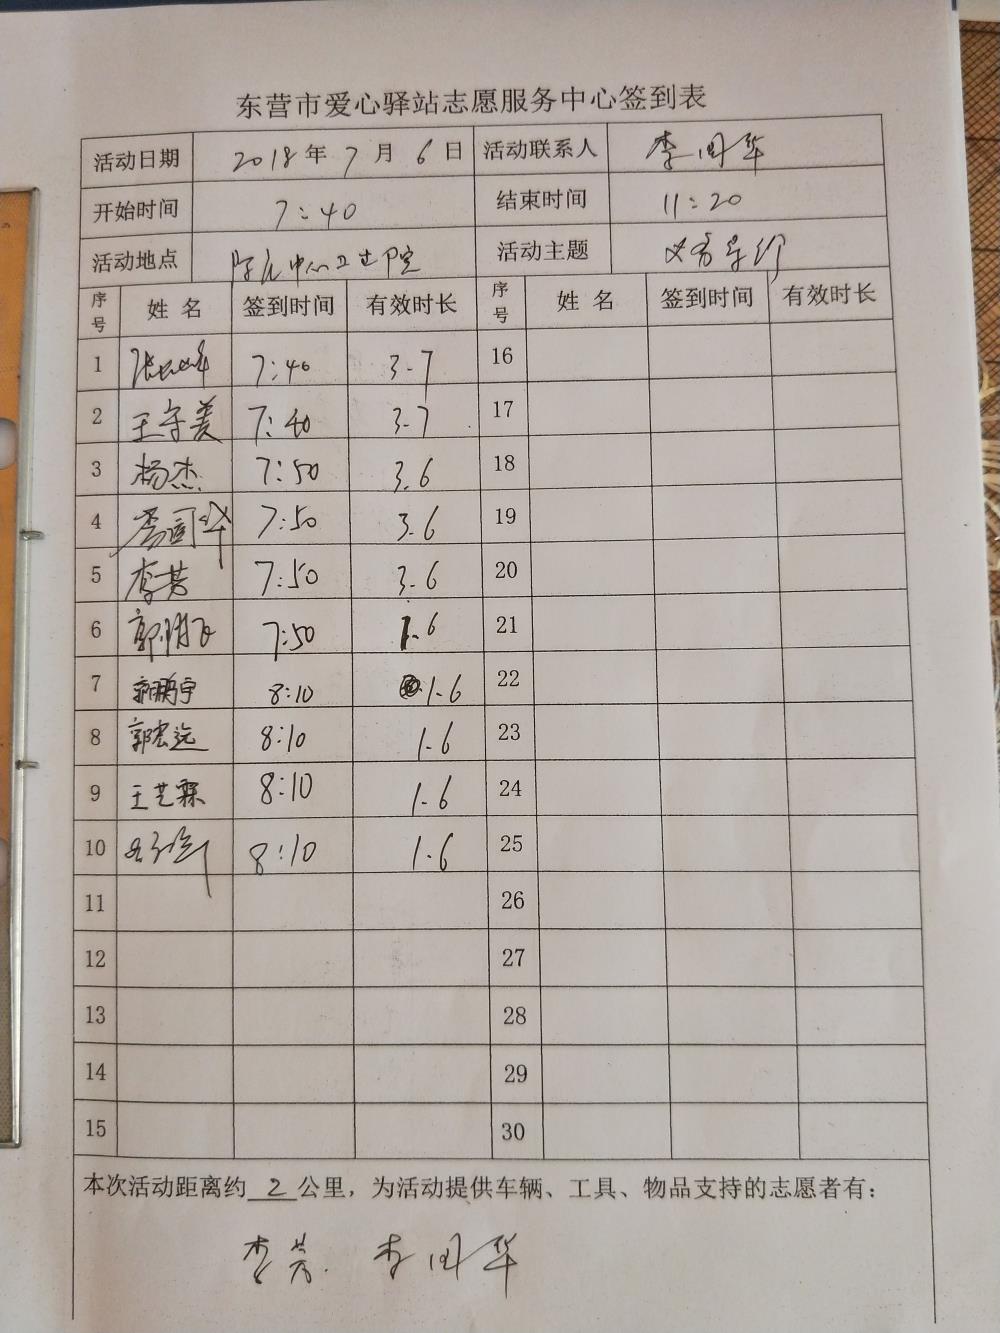 东营市爱心驿站志愿服务中心签到表
活动日期 2018年7月6日 活动联系人 李国华
开始时间 7:40 结束时间 11:20
活动地点 中心卫生院 活动主题 义务导诊
序号 姓名 签到时间 有效时长 序号 姓名 签到时间 有效时长
1 7:40 3.7 16
2 王守美 7:40 3.7 17
3 杨杰 7:50 3.6 18
4 李国华 7:50 3.6 19
5 李芳 7:50 3.6 20
6 郭 7:50 1.6 21
7 郭鹏宇 8:10 1.6 22
8 郭宏远 8:10 1.6 23
9 王艺霖 8:10 1.6 24
10 8:10 1.6 25
11 26
12 27
13 28
14 29
15 30
本次活动距离约 2 公里，为活动提供车辆、工具、物品支持的志愿者有：
李芳. 李国华